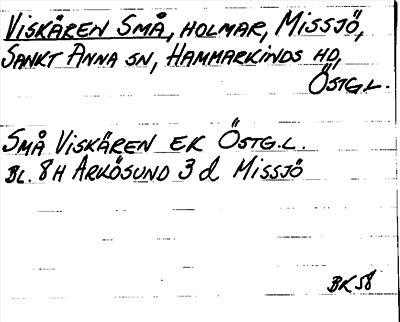 VISKÄREN SMÅ, HOLMAR, MISSJÖ,
SANKT ANNA SN, HAMMARKINDS HD,
ÖSTG.L.
SMÅ VISKÄREN EK ÖSTG.L.
BL. 8H ARKÖSUND 3 d MISSJÖ
BK 58